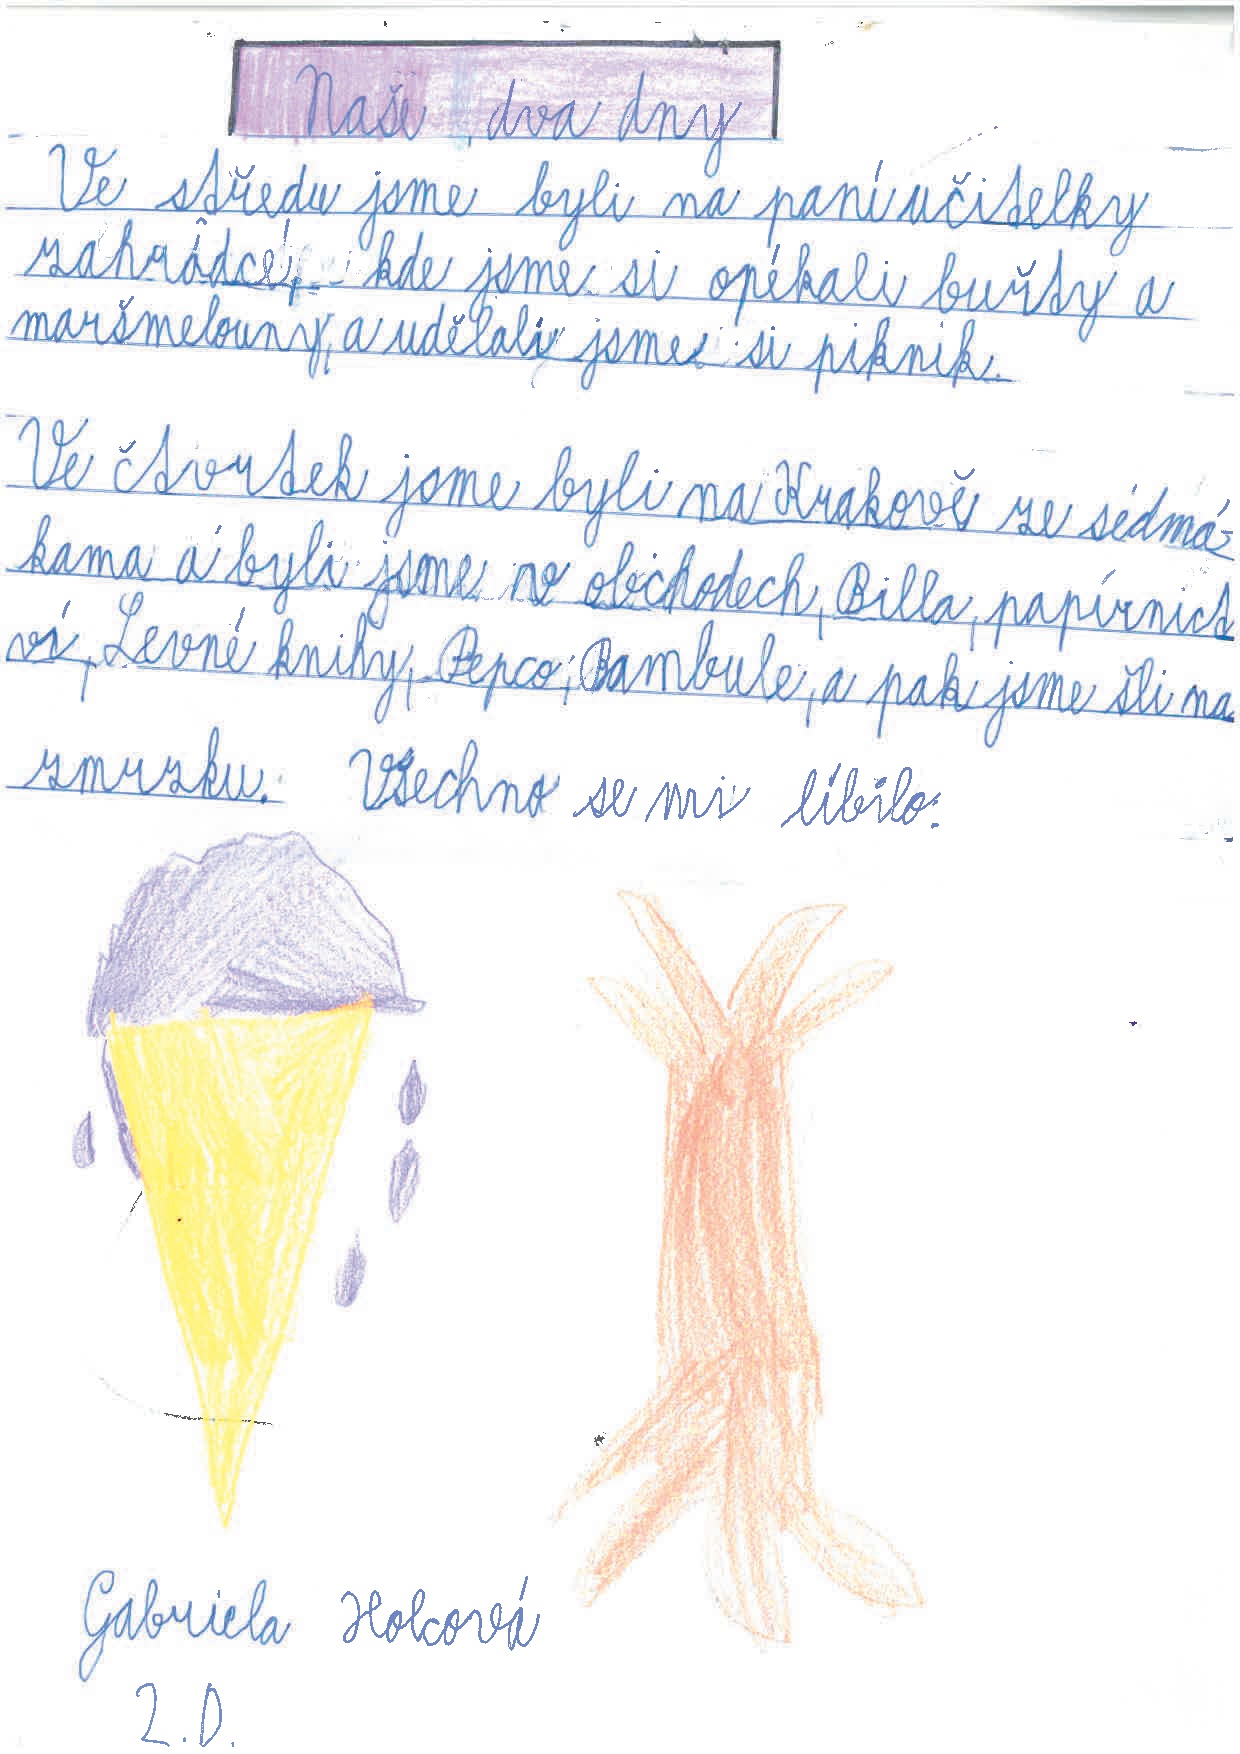 Naše dva dny
Ve středu jsme byli na paní učitelky
zahrádce, kde jsme si opékali buřty a
maršmelouny, a udělali jsme si piknik.
Ve čtvrtek jsme byli na Krakově ze sédmá-
kama a byli jsme ve obchodech, Billa, papírnict
ví, Levné knihy, Pepco, Bambule, a pak jsme šli na
zmrzku. Všechno se mi líbilo.
Gabriela Holcová
2.D.